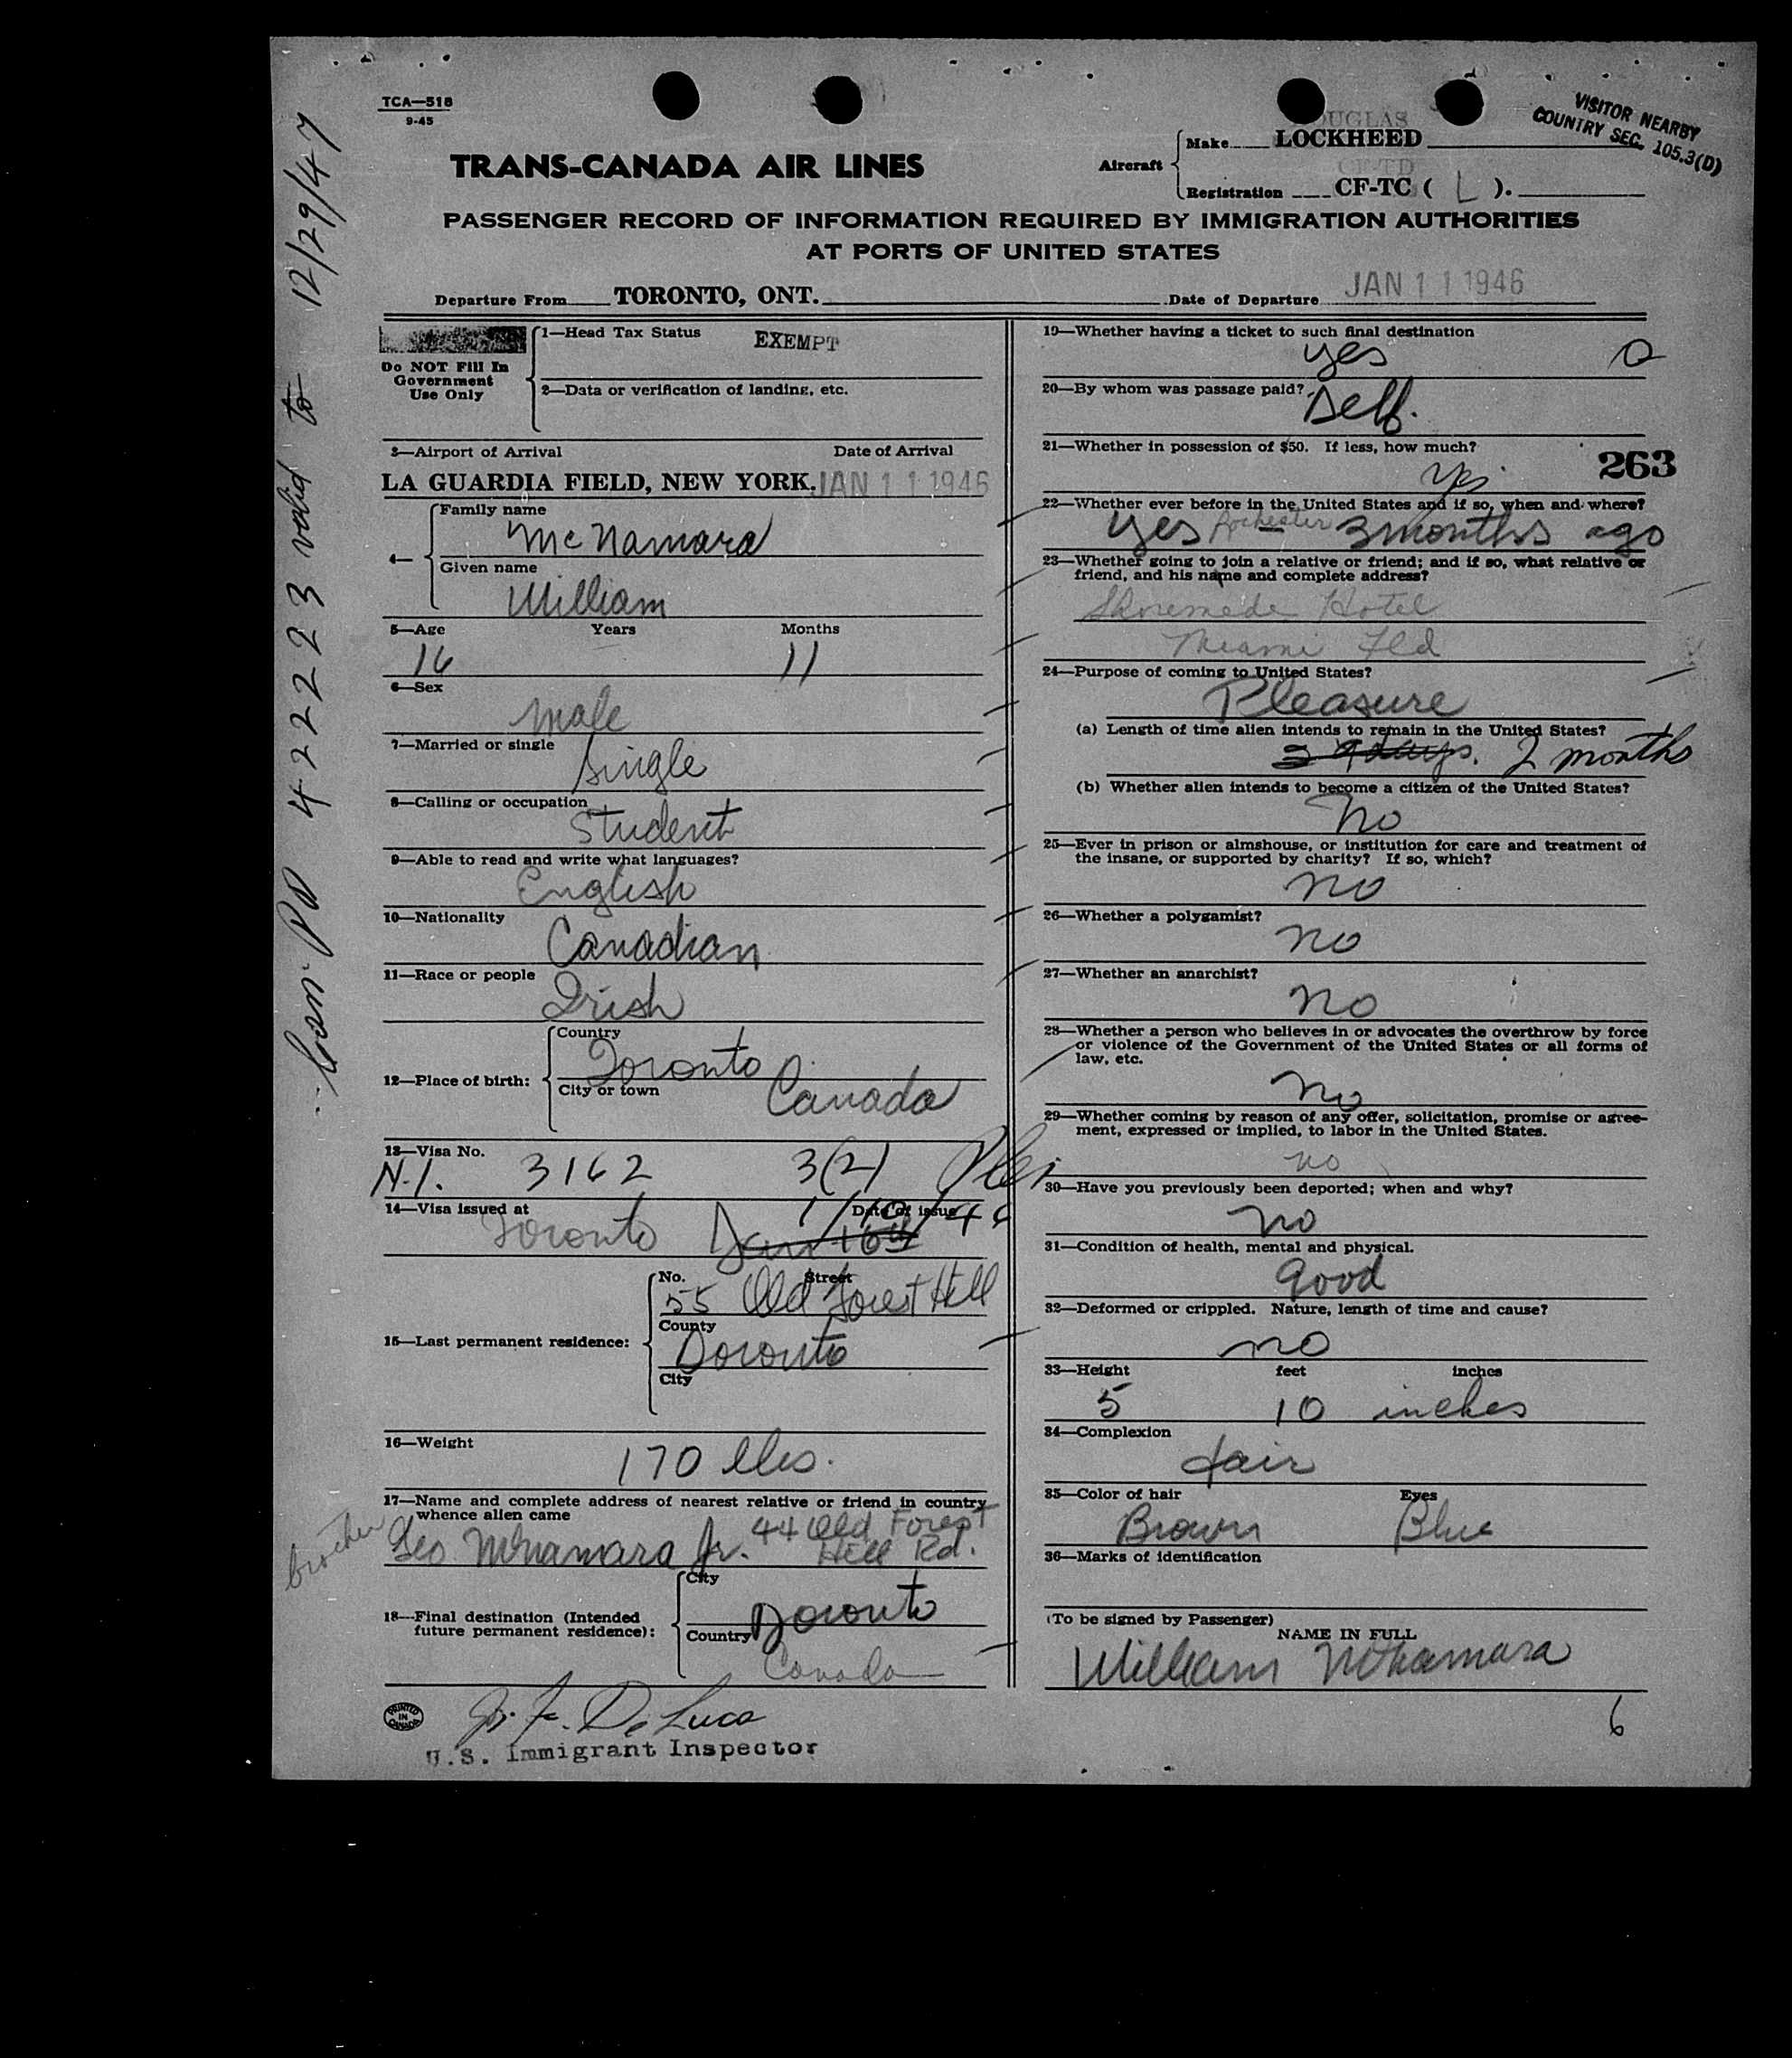 TCA—518
9-45
VISITOR NEARBY
COUNTRY SEC. 105.3(D)
TRANS-CANADA AIR LINES
Aircraft
DOUGLAS
Make LOCKHEED
Registration CF-TC ( L ).
PASSENGER RECORD OF INFORMATION REQUIRED BY IMMIGRATION AUTHORITIES
AT PORTS OF UNITED STATES
Departure From TORONTO, ONT. Date of Departure JAN 11 1946
Can PP 422223 valid to 12/29/47
Do NOT Fill In
Government
Use Only
1—Head Tax Status EXEMPT
2—Data or verification of landing, etc.
3—Airport of Arrival Date of Arrival
LA GUARDIA FIELD, NEW YORK. JAN 11 1946
4—
Family name
McNamara
Given name
William
5—Age Years Months
16 11
6—Sex
Male
7—Married or single
Single
8—Calling or occupation
Student
9—Able to read and write what languages?
English
10—Nationality
Canadian
11—Race or people
Irish
12—Place of birth:
Country
Toronto
City or town
Canada
13—Visa No.
N.I. 3162 3(2)
14—Visa issued at Date of issue
1/10/46
Toronto Jan 10th
15—Last permanent residence:
No. Street
55 Old Forest Hill
County
Toronto
City
16—Weight
170 lbs.
17—Name and complete address of nearest relative or friend in country
whence alien came
brother Geo McNamara Jr. 44 Old Forest
Hill Rd.
18—Final destination (Intended
future permanent residence):
City
Toronto
Country
Canada
PRINTED
IN
CANADA
De Luca
U.S. Immigrant Inspector
19—Whether having a ticket to such final destination
yes
20—By whom was passage paid?
Self.
21—Whether in possession of $50. If less, how much?
Yes
263
22—Whether ever before in the United States and if so, when and where?
Yes Rochester — 3 months ago
23—Whether going to join a relative or friend; and if so, what relative or
friend, and his name and complete address?
Shoremede Hotel
Miami Fld
24—Purpose of coming to United States?
Pleasure
(a) Length of time alien intends to remain in the United States?
days. 2 months
(b) Whether alien intends to become a citizen of the United States?
No
25—Ever in prison or almshouse, or institution for care and treatment of
the insane, or supported by charity? If so, which?
no
26—Whether a polygamist?
no
27—Whether an anarchist?
no
28—Whether a person who believes in or advocates the overthrow by force
or violence of the Government of the United States or all forms of
law, etc.
no
29—Whether coming by reason of any offer, solicitation, promise or agree-
ment, expressed or implied, to labor in the United States.
no
30—Have you previously been deported; when and why?
no
31—Condition of health, mental and physical.
good
32—Deformed or crippled. Nature, length of time and cause?
no
33—Height feet inches
5 10 inches
34—Complexion
fair
35—Color of hair Eyes
Brown Blue
36—Marks of identification
(To be signed by Passenger)
NAME IN FULL
William McNamara
6